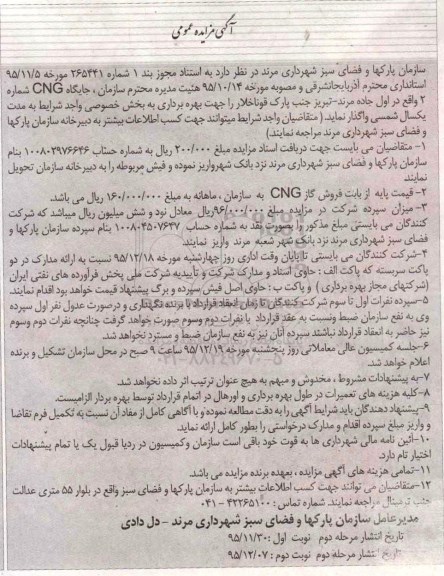 آگهی مزایده عمومی
سازمان پارکها و فضای سبز شهرداری مرند در نظر دارد به استناد مجوز بند ۱ شماره ۲۶۵۴۴۱ مورخه ۹۵/۱۱/۵
استانداری محترم آذربایجانشرقی و مصوبه مورخه ۹۵/۱۰/۱۴ هئیت مدیره محترم سازمان ، جایگاه CNG شماره
۲ واقع در اول جاده مرند-تبریز جنب پارک قوناخلار را جهت بهره برداری به بخش خصوصی واجد شرایط به مدت
یکسال شمسی واگذار نماید.( متقاضیان واجد شرایط میتوانند جهت کسب اطلاعات بیشتر به دبیرخانه سازمان پارکها
و فضای سبز شهرداری مرند مراجعه نمایند.)
۱- متقاضیان می بایست جهت دریافت اسناد مزایده مبلغ ۲۰۰/۰۰۰ ریال به شماره حساب ۱۰۰۸۰۲۹۷۶۶۴۶ بنام
سازمان پارکها و فضای سبز شهرداری مرند نزد بانک شهرواریز نموده و فیش مربوطه را به دبیرخانه سازمان تحویل
نمایند.
۲- قیمت پایه از بابت فروش گاز CNG به سازمان ، ماهانه به مبلغ ۱۶۰/۰۰۰/۰۰۰ ریال می باشد.
۳- میزان سپرده شرکت در مزایده مبلغ ۹۶/۰۰۰/۰۰۰ریال معادل نود و شش میلیون ریال میباشد که شرکت
کنندگان می بایستی مبلغ مذکور را بصورت نقد به شماره حساب ۱۰۰۸۰۴۵۰۷۶۴۷ بنام سپرده سازمان پارکها و
فضای سبز شهرداری مرند نزد بانک شهر شعبه مرند واریز نمایند.
۴-شرکت کنندگان می بایستی تا پایان وقت اداری روز چهارشنبه مورخه ۹۵/۱۲/۱۸ نسبت به ارائه مدارک در دو
پاکت سربسته که پاکت الف : حاوی اسناد و مدارک شرکت و تأییدیه شرکت ملی پخش فرآورده های نفتی ایران
(شرکتهای مجاز بهره برداری ) و پاکت ب : حاوی اصل فیش سپرده و برگ پیشنهاد قیمت خواهد بود اقدام نمایند.
۵-سپرده نفرات اول تا سوم شرکت کنندگان تا زمان انعقاد قرارداد با برنده نگهداری و درصورت عدول نفر اول سپرده
وی به نفع سازمان ضبط ونسبت به عقد قرارداد با نفرات دوم وسوم صورت خواهد گرفت چنانچه نفرات دوم وسوم
نیز حاضر به انعقاد قرارداد نباشند سپرده آنان نیز به نفع سازمان ضبط و مسترد نخواهد شد.
۶-جلسه کمیسیون عالی معاملاتی روز پنجشنبه مورخه ۹۵/۱۲/۱۹ ساعت ۹ صبح در محل سازمان تشکیل و برنده
اعلام خواهد شد.
۷-به پیشنهادات مشروط ، مخدوش و مبهم به هیچ عنوان ترتیب اثر داده نخواهد شد.
۸-کلیه هزینه های تعمیرات در طول بهره برداری و اورهال در اتمام قرارداد توسط بهره بردار الزامیست.
۹-پیشنهاد دهندگان باید شرایط آگهی را به دقت مطالعه نموده و با آگاهی کامل از مفاد آن نسبت به تکمیل فرم تقاضا
و واریز مبلغ سپرده اقدام و مدارک درخواستی را بطور کامل ارائه نماید.
۱۰-آئین نامه مالی شهرداری ها به قوت خود باقی است سازمان وکمیسیون در ردیا قبول یک یا تمام پیشنهادات
اختیار تام دارد.
۱۱-تمامی هزینه های آگهی مزایده ، بعهده برنده مزایده می باشد.
۱۲-متقاضیان می توانند جهت کسب اطلاعات بیشتر به سازمان پارکها و فضای سبز واقع در بلوار ۵۵ متری عدالت
جنب ترمینال مراجعه نمایند. شماره تماس : ۴۲۲۶۵۱۰۰ - ۰۴۱
مدیرعامل سازمان پارکها و فضای سبز شهرداری مرند - دل دادی
تاریخ انتشار مرحله دوم نوبت اول :۹۵/۱۱/۳۰
تاریخ انتشار مرحله دوم نوبت دوم : ۹۵/۱۲/۰۷